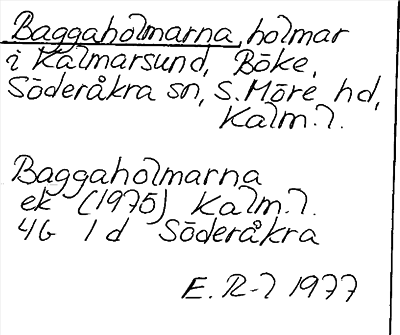 Baggaholmarna, holmar
i Kalmarsund, Böke,
Söderåkra sn, S. Möre hd,
Kalm. l.
Baggaholmarna
ek (1975) Kalm. l.
4G 1d Söderåkra
E. R-l 1977